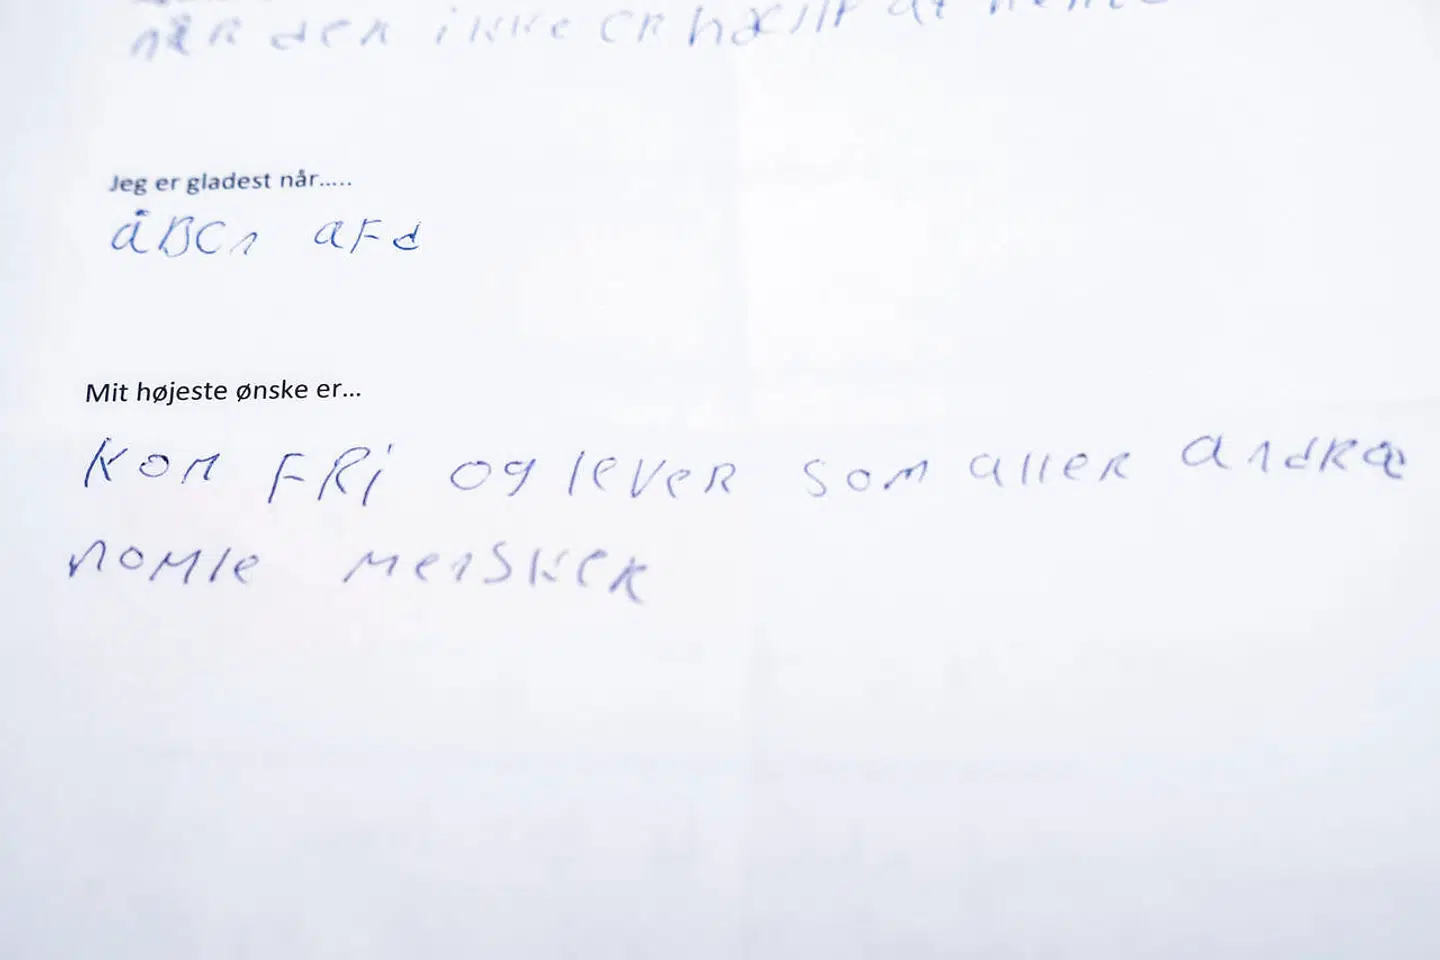 når den ikke er
Jeg er gladest når.....
åBCn aFd
Mit højeste ønske er...
kom FRi og lever som aller andRæ
nomle mensker